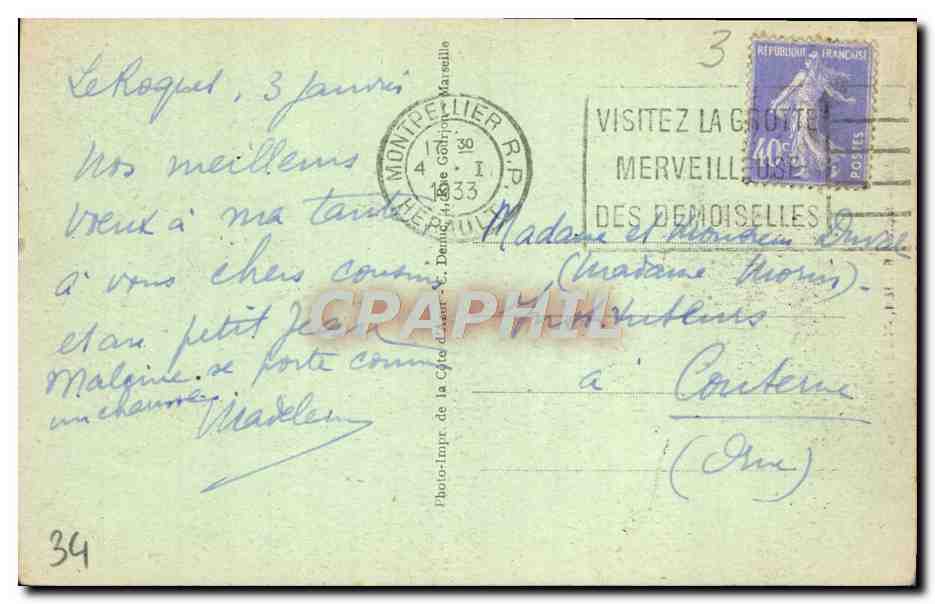 Le Roquet, 3 janvier
Nos meilleurs
voeux à ma tante
à vous chers cousins
et au petit Jean
se porte comme
un
Madeleine
34
Photo-Impr. de la Côte d'Azur - E. Rue Goudjon, Marseille
MONTPELLIER R.P.
17 30
4 - I
1933
HERAULT
3
VISITEZ LA GROTTE
MERVEILLEUSE
DES DEMOISELLES
RÉPUBLIQUE FRANÇAISE
40c
POSTES
Madame et Monsieur Duval
(Madame Morin).
Instituteurs
à Couterne
(Orne)
CPAPHIL